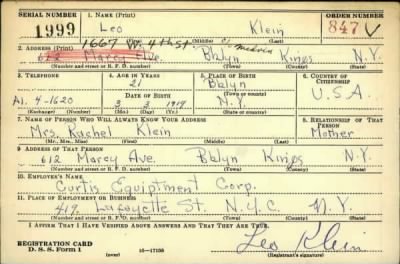 SERIAL NUMBER 1. NAME (Print) ORDER NUMBER
1999 Leo Klein 847 V
(First) (Middle) (Last)
1667 W. 4th St.
2. ADDRESS (Print)
612 Marcy Ave. Bklyn Kings N.Y.
(Number and street or R. F. D. number) (Town) (County) (State)
3. TELEPHONE 4. AGE IN YEARS 5. PLACE OF BIRTH 6. COUNTRY OF CITIZENSHIP
21 Bklyn
DATE OF BIRTH (Town or county) U.S.A.
Al. 4-1620 3 3 1919 N.Y.
(Exchange) (Number) (Mo.) (Day) (Yr.) (State or country)
7. NAME OF PERSON WHO WILL ALWAYS KNOW YOUR ADDRESS 8. RELATIONSHIP OF THAT PERSON
Mrs. Rachel Klein Mother
(Mr., Mrs., Miss) (First) (Middle) (Last)
9. ADDRESS OF THAT PERSON
612 Marcy Ave. Bklyn Kings N.Y.
(Number and street or R. F. D. number) (Town) (County) (State)
10. EMPLOYER'S NAME
Curtis Equiptment Corp.
11. PLACE OF EMPLOYMENT OR BUSINESS
419 Lafayette St. N.Y.C. N.Y.
(Number and street or R. F. D. number) (Town) (County) (State)
I AFFIRM THAT I HAVE VERIFIED ABOVE ANSWERS AND THAT THEY ARE TRUE.
REGISTRATION CARD
D. S. S. Form 1 (over) 16—17105 Leo Klein
(Registrant's signature)